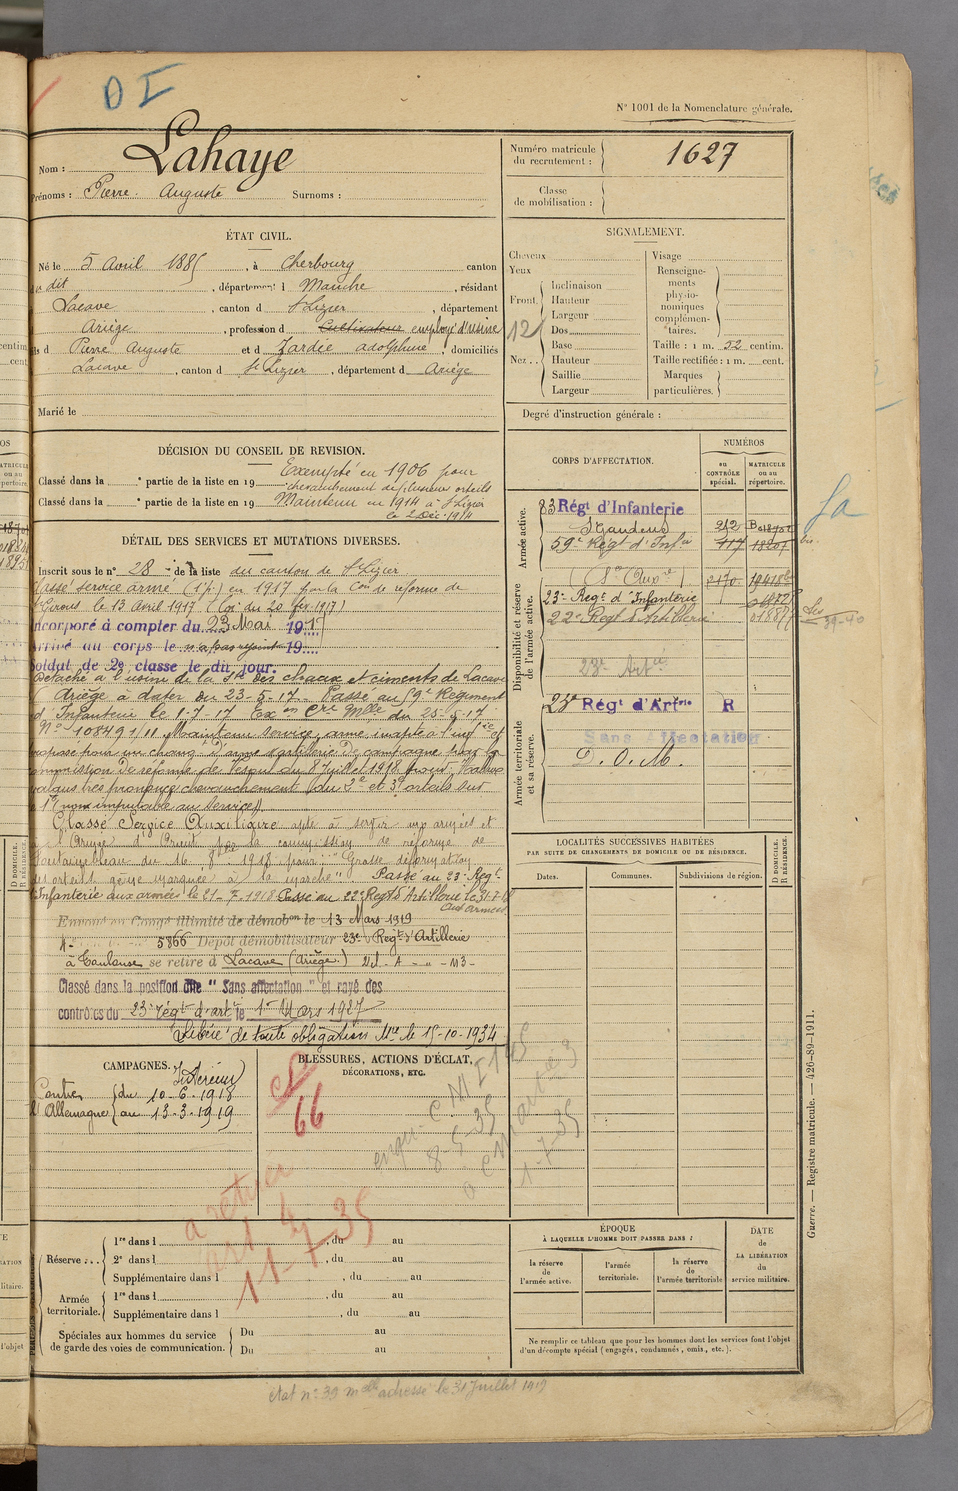 D I
N° 1001 de la Nomenclature générale.
Nom : Lahaye
Prénoms : Pierre Auguste Surnoms :
Numéro matricule du recrutement : 1627
Classe de mobilisation :
ÉTAT CIVIL.
Né le 5 Avril 1885, à Cherbourg canton
du dit, département d Manche, résidant
Lacave, canton d St Lizier, département
Ariège, profession d Cultivateur employé d'usine
fils d Pierre Auguste et d Zardie adolphine, domiciliés
Lacave, canton d St Lizier, département d Ariège
Marié le
SIGNALEMENT.
Cheveux
Yeux
Front. Inclinaison
Hauteur
Largeur
12
Nez... Dos
Base
Hauteur
Saillie
Largeur
Visage
Renseignements physionomiques complémentaires.
Taille : 1 m. 52 centim.
Taille rectifiée : 1 m. cent.
Marques particulières.
Degré d'instruction générale :
DÉCISION DU CONSEIL DE REVISION.
Exempté en 1906 pour
Classé dans la e partie de la liste en 19 chevauchement de plusieurs orteils
Classé dans la e partie de la liste en 19 Maintenu en 1914 à St Lizier
le 2 Déc. 1914
DÉTAIL DES SERVICES ET MUTATIONS DIVERSES.
Inscrit sous le n° 28 de la liste du canton de St Lizier
Classé service armé (1 p.) en 1917 par la Con de réforme de
St Girons le 13 Avril 1917 (Loi du 20 fév. 1917)
Incorporé à compter du 23 Mai 1917
Arrivé au corps le n'a pas rejoint 19
Soldat de 2e classe le dit jour.
Détaché à l'usine de la Sté des chaux et ciments de Lacave
Ariège à dater du 23-5-17. Passé au 59e Régiment
d'Infanterie le 1-7-17 Exon Cre Mlle du 25-5-17
N° 10849 1/11 Maintenu service armé inapte à l'infie et
proposé pour un chang. d'arme artillerie de campagne par la
commission de réforme de Vesoul du 8 Juillet 1918 pour: Hallux
valgus très prononcé chevauchement du 2e et 3e orteils sur
1er (non imputable au service)
Classé Service Auxiliaire apte à servir aux armées et
à l'Armée d'Orient par la commission de réforme de
Fontainebleau du 16 1918 pour: "Grosse déformation
des orteils gêne marquée à la marche" Passé au 23e Régt
Infanterie aux armées le 21-7-1918 Passé au 22e Régt d'Artillerie le 31-
aux armées
Envoyé en Congé illimité de démobon le 13 Mars 1919
4e 5866 Dépôt démobilisateur 23e Régt d'Artillerie
à Toulouse se retire à Lacave (Ariège)
Classé dans la position dite "Sans affectation" et rayé des
contrôles du 23e régt d'artie le 1er Mars 1927
Libéré de toute obligation Mre le 15-10-1934
CORPS D'AFFECTATION.
NUMÉROS
au CONTRÔLE spécial.
MATRICULE ou au répertoire.
Armée active.
83 Régt d'Infanterie
St Gaudens 212
59e Régt d'Infie 117 bis
(Son Auxre) 2170
Disponibilité et réserve de l'armée active.
23e Régt d'Infanterie
22e Régt d'Artillerie
23e Artie
Armée territoriale et sa réserve.
23e Régt d'Artrie R
Sans Affectation
D.O.M.
39-40
LOCALITÉS SUCCESSIVES HABITÉES
PAR SUITE DE CHANGEMENTS DE DOMICILE OU DE RÉSIDENCE.
Dates. Communes. Subdivisions de région. D DOMICILE. R RÉSIDENCE.
CAMPAGNES.
Intérieur
Contre l'Allemagne du 10-6-1918
au 13-3-1919
BLESSURES, ACTIONS D'ÉCLAT,
DÉCORATIONS, ETC.
66
8-5-35
1-7-35
11-7-35
Réserve : 1re dans l , du au
2e dans l , du au
Supplémentaire dans l , du au
Armée territoriale. 1re dans l , du au
Supplémentaire dans l , du au
Spéciales aux hommes du service de garde des voies de communication. Du au
Du au
ÉPOQUE
À LAQUELLE L'HOMME DOIT PASSER DANS :
la réserve de l'armée active.
l'armée territoriale.
la réserve de l'armée territoriale
DATE de LA LIBÉRATION du service militaire.
Ne remplir ce tableau que pour les hommes dont les services font l'objet
d'un décompte spécial (engagés, condamnés, omis, etc.).
Guerre. — Registre matricule. — 426-89-1911.
état n° 39 mod adressé le 31 Juillet 1919